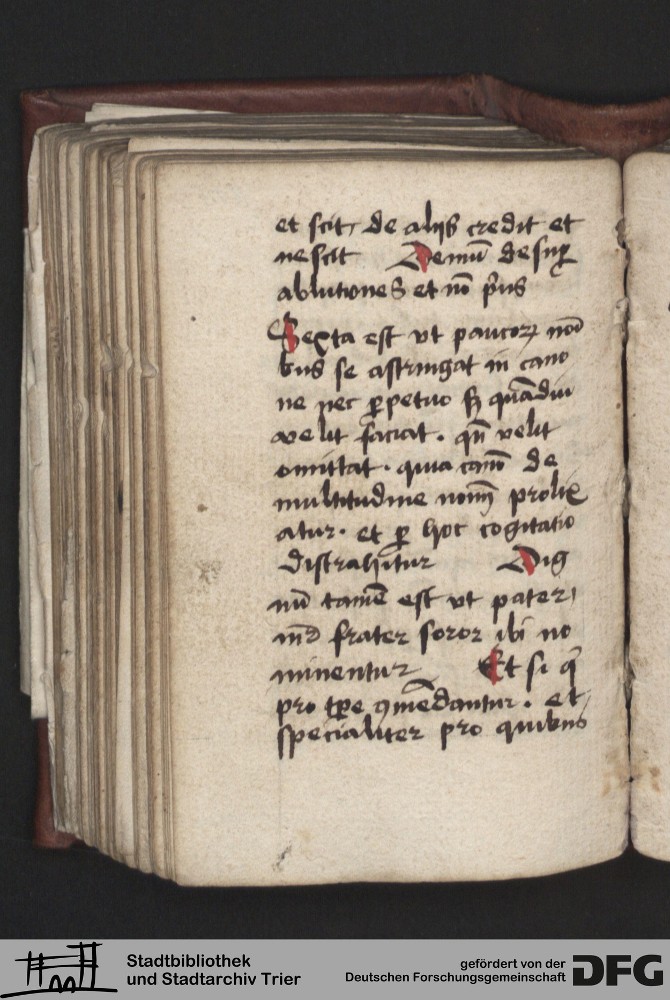 et scit, de alijs credit et
nescit Demū desuꝑ
ablutiones et nō pͥus
Sexta est vt paucoꝝ noī
bus se astringat in cano
ne nec ꝑpetuo sꝫ quādiu
velit faciat. qn̄ velit
omittat. quia canō de
multitudine noīm prolix
atur. et ꝑ hoc cogitatio
distrahitur Dig
nū tamē est vt pater,
mr̄ frater soror ibi no
minentur Et si qͥ
pro tꝑe ꝯmēdantur. et
specialiter pro quibus
Stadtbibliothek
und Stadtarchiv Trier
gefördert von der
Deutschen Forschungsgemeinschaft
DFG